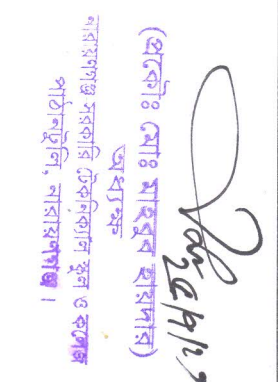 (প্রকৌঃ মোঃ মাহবুব হায়দার)
অধ্যক্ষ
নারায়ণগঞ্জ সরকারি টেকনিক্যাল স্কুল ও কলেজ
পাঠানটুলি, নারায়ণগঞ্জ।